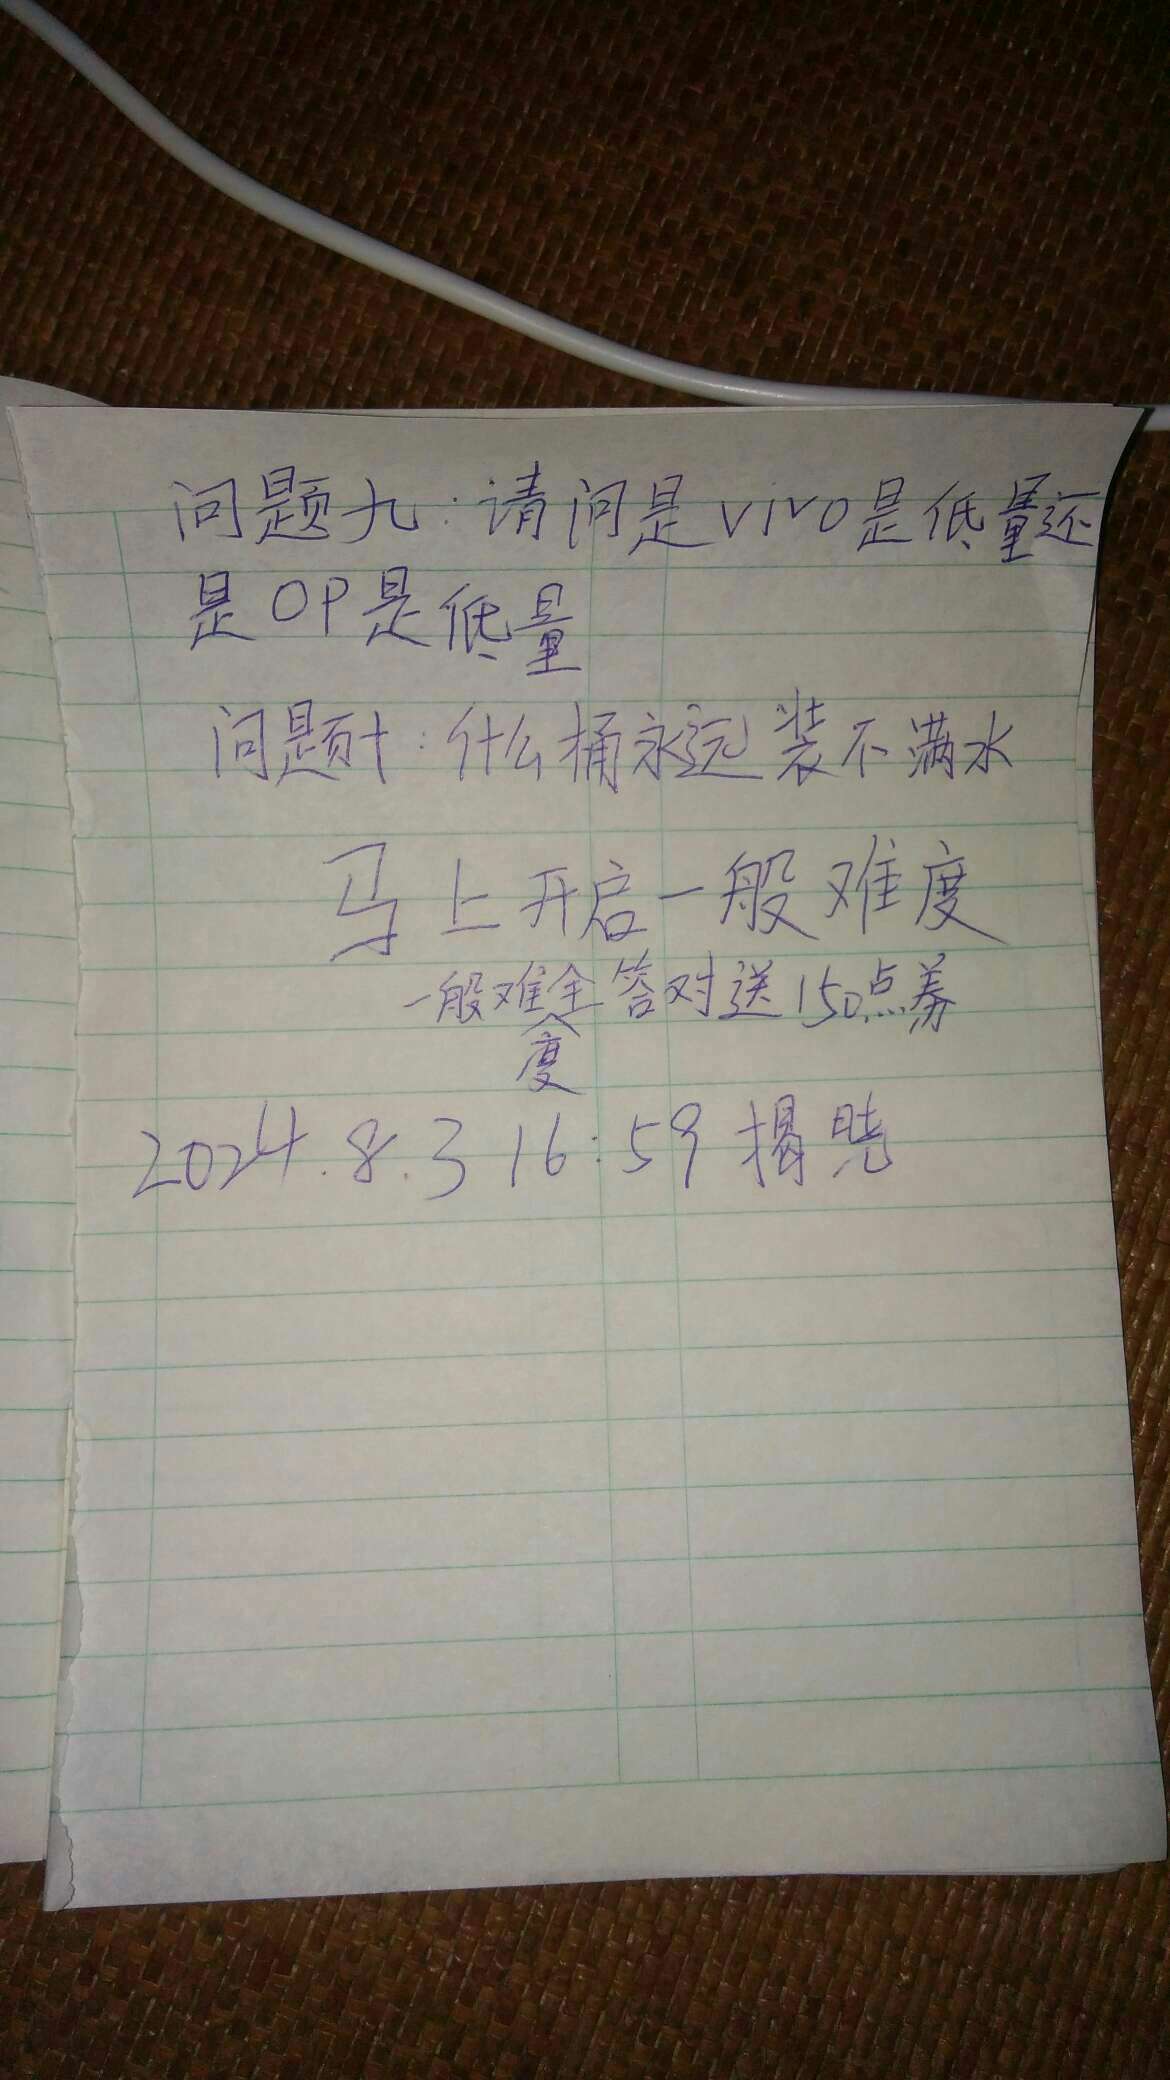 问题九:请问是vivo是低量还
是OP是低量
问题十:什么桶永远装不满水
马上开启一般难度
一般难度全答对送150点券
2024.8.3 16:59揭晓